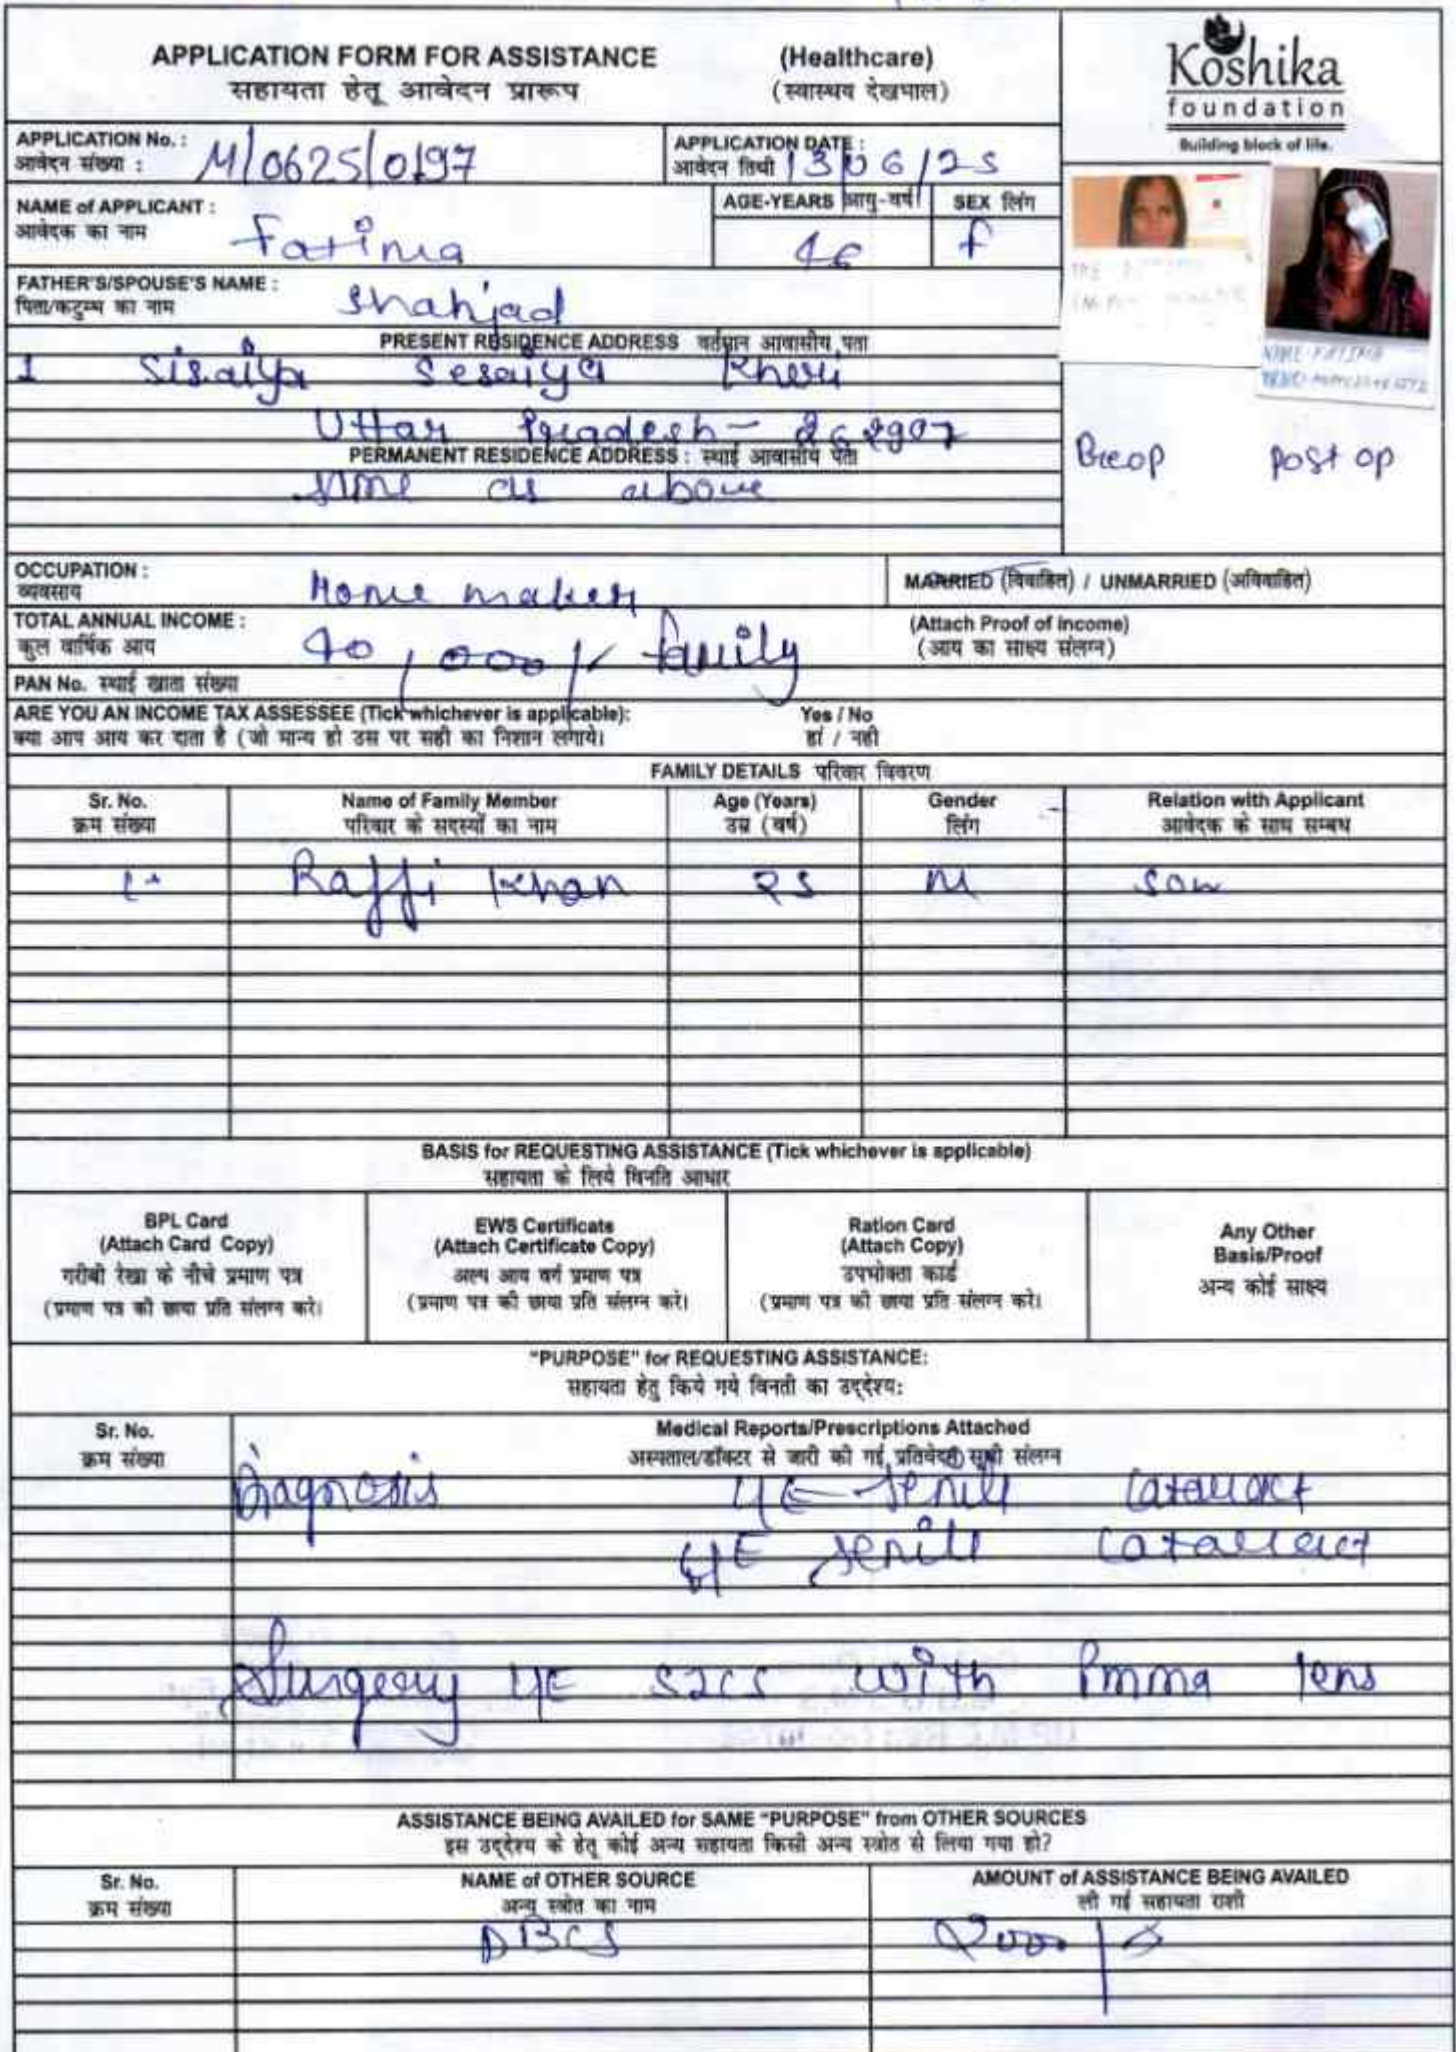 APPLICATION FORM FOR ASSISTANCE (Healthcare)
सहायता हेतू आवेदन प्रारूप (स्वास्थय देखभाल)
Koshika
foundation
Building block of life.
APPLICATION No. : M/0625/0197
आवेदन संख्या :
APPLICATION DATE : 13/06/25
आवेदन तिथी
NAME of APPLICANT : Fatima
आवेदक का नाम
AGE-YEARS आयु-वर्ष
SEX लिंग
F
FATHER'S/SPOUSE'S NAME : Shahjad
पिता/कटुम्ब का नाम
PRESENT RESIDENCE ADDRESS वर्तमान आवासीय पता
1 Sisaiya Sesaiya Kheri
Uttar Pradesh- 262907
PERMANENT RESIDENCE ADDRESS : स्थाई आवासीय पता
same as above
NAME-FATIMA
Preop post op
OCCUPATION : Home maker
व्यवसाय
MARRIED (विवाहित) / UNMARRIED (अविवाहित)
TOTAL ANNUAL INCOME : 40,000/- family
कुल वार्षिक आय
(Attach Proof of Income)
(आय का साक्ष्य संलग्न)
PAN No. स्थाई खाता संख्या
ARE YOU AN INCOME TAX ASSESSEE (Tick whichever is applicable): Yes / No
क्या आप आय कर दाता है (जो मान्य हो उस पर सही का निशान लगाये। हां / नही
FAMILY DETAILS परिवार विवरण
Sr. No. Name of Family Member Age (Years) Gender Relation with Applicant
क्रम संख्या परिवार के सदस्यों का नाम उम्र (वर्ष) लिंग आवेदक के साथ सम्बध
1. Raffi Khan 25 M son
BASIS for REQUESTING ASSISTANCE (Tick whichever is applicable)
सहायता के लिये विनति आधार
BPL Card
(Attach Card Copy)
गरीबी रेखा के नीचे प्रमाण पत्र
(प्रमाण पत्र की छाया प्रति संलग्न करे।
EWS Certificate
(Attach Certificate Copy)
अल्प आय वर्ग प्रमाण पत्र
(प्रमाण पत्र की छाया प्रति संलग्न करे।
Ration Card
(Attach Copy)
उपभोक्ता कार्ड
(प्रमाण पत्र की छाया प्रति संलग्न करे।
Any Other
Basis/Proof
अन्य कोई साक्ष्य
"PURPOSE" for REQUESTING ASSISTANCE:
सहायता हेतु किये गये विनती का उद्देश्य:
Sr. No. Medical Reports/Prescriptions Attached
क्रम संख्या अस्पताल/डॉक्टर से जारी की गई प्रतिवेदन सूची संलग्न
Diagnosis senile cataract
senile cataract
Surgery SICS with Pmma lens
ASSISTANCE BEING AVAILED for SAME "PURPOSE" from OTHER SOURCES
इस उद्देश्य के हेतू कोई अन्य सहायता किसी अन्य स्त्रोत से लिया गया हो?
Sr. No. NAME of OTHER SOURCE AMOUNT of ASSISTANCE BEING AVAILED
क्रम संख्या अन्य स्त्रोत का नाम ली गई सहायता राशी
DBCS 2000/-